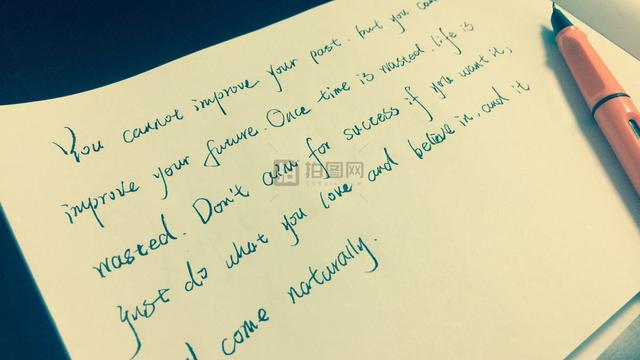 You cannot improve your past. but you can
improve your future. Once time is wasted. life is
wasted. Don't aim for success if you want it,
just do what you love and believe in, and it
come naturally.
拍图网